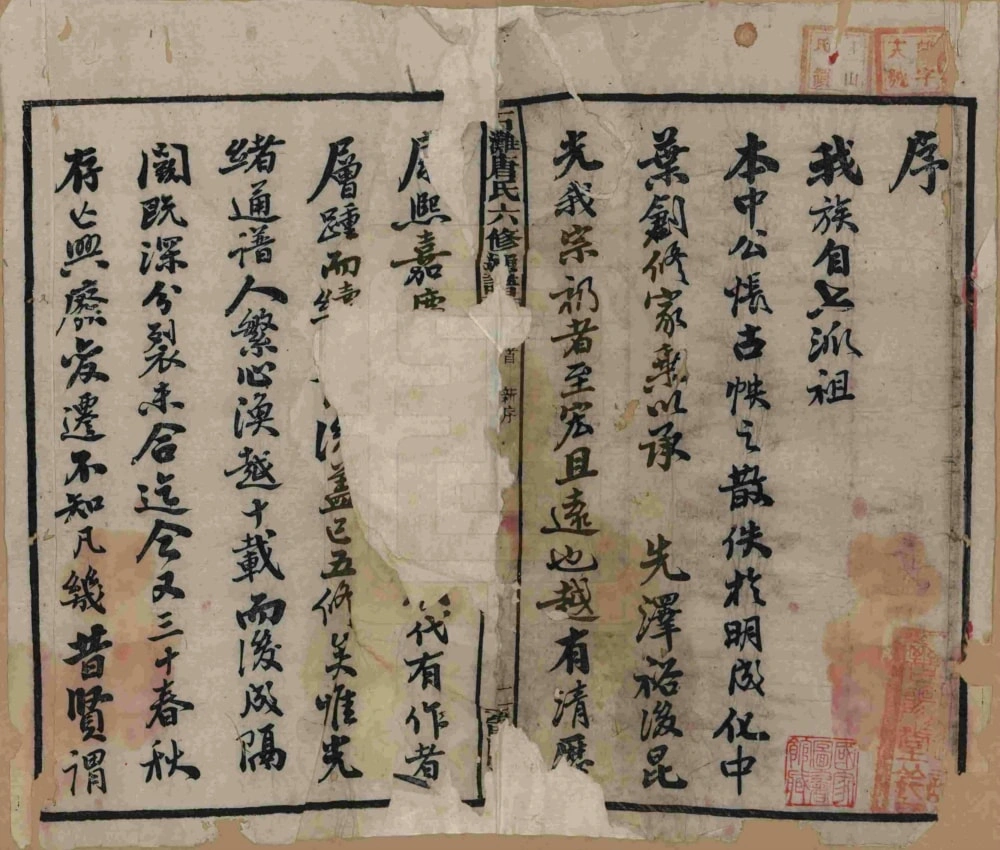 序
我族自上派祖
本中公悵古帙之散佚於明成化中
葉創修家乘以承 先澤裕後昆
光我宗祊者至宏且遠也越有清歷
康熙嘉慶 代有作者
層踵而續 後蓋已五修矣惟光
緒通譜人繁心渙越十載而後成隔
閡既深分裂未合迄今又三十春秋
存亡興廢変遷不知凡幾昔賢謂
石灘唐氏六修族譜
首 新序
國家圖書館藏